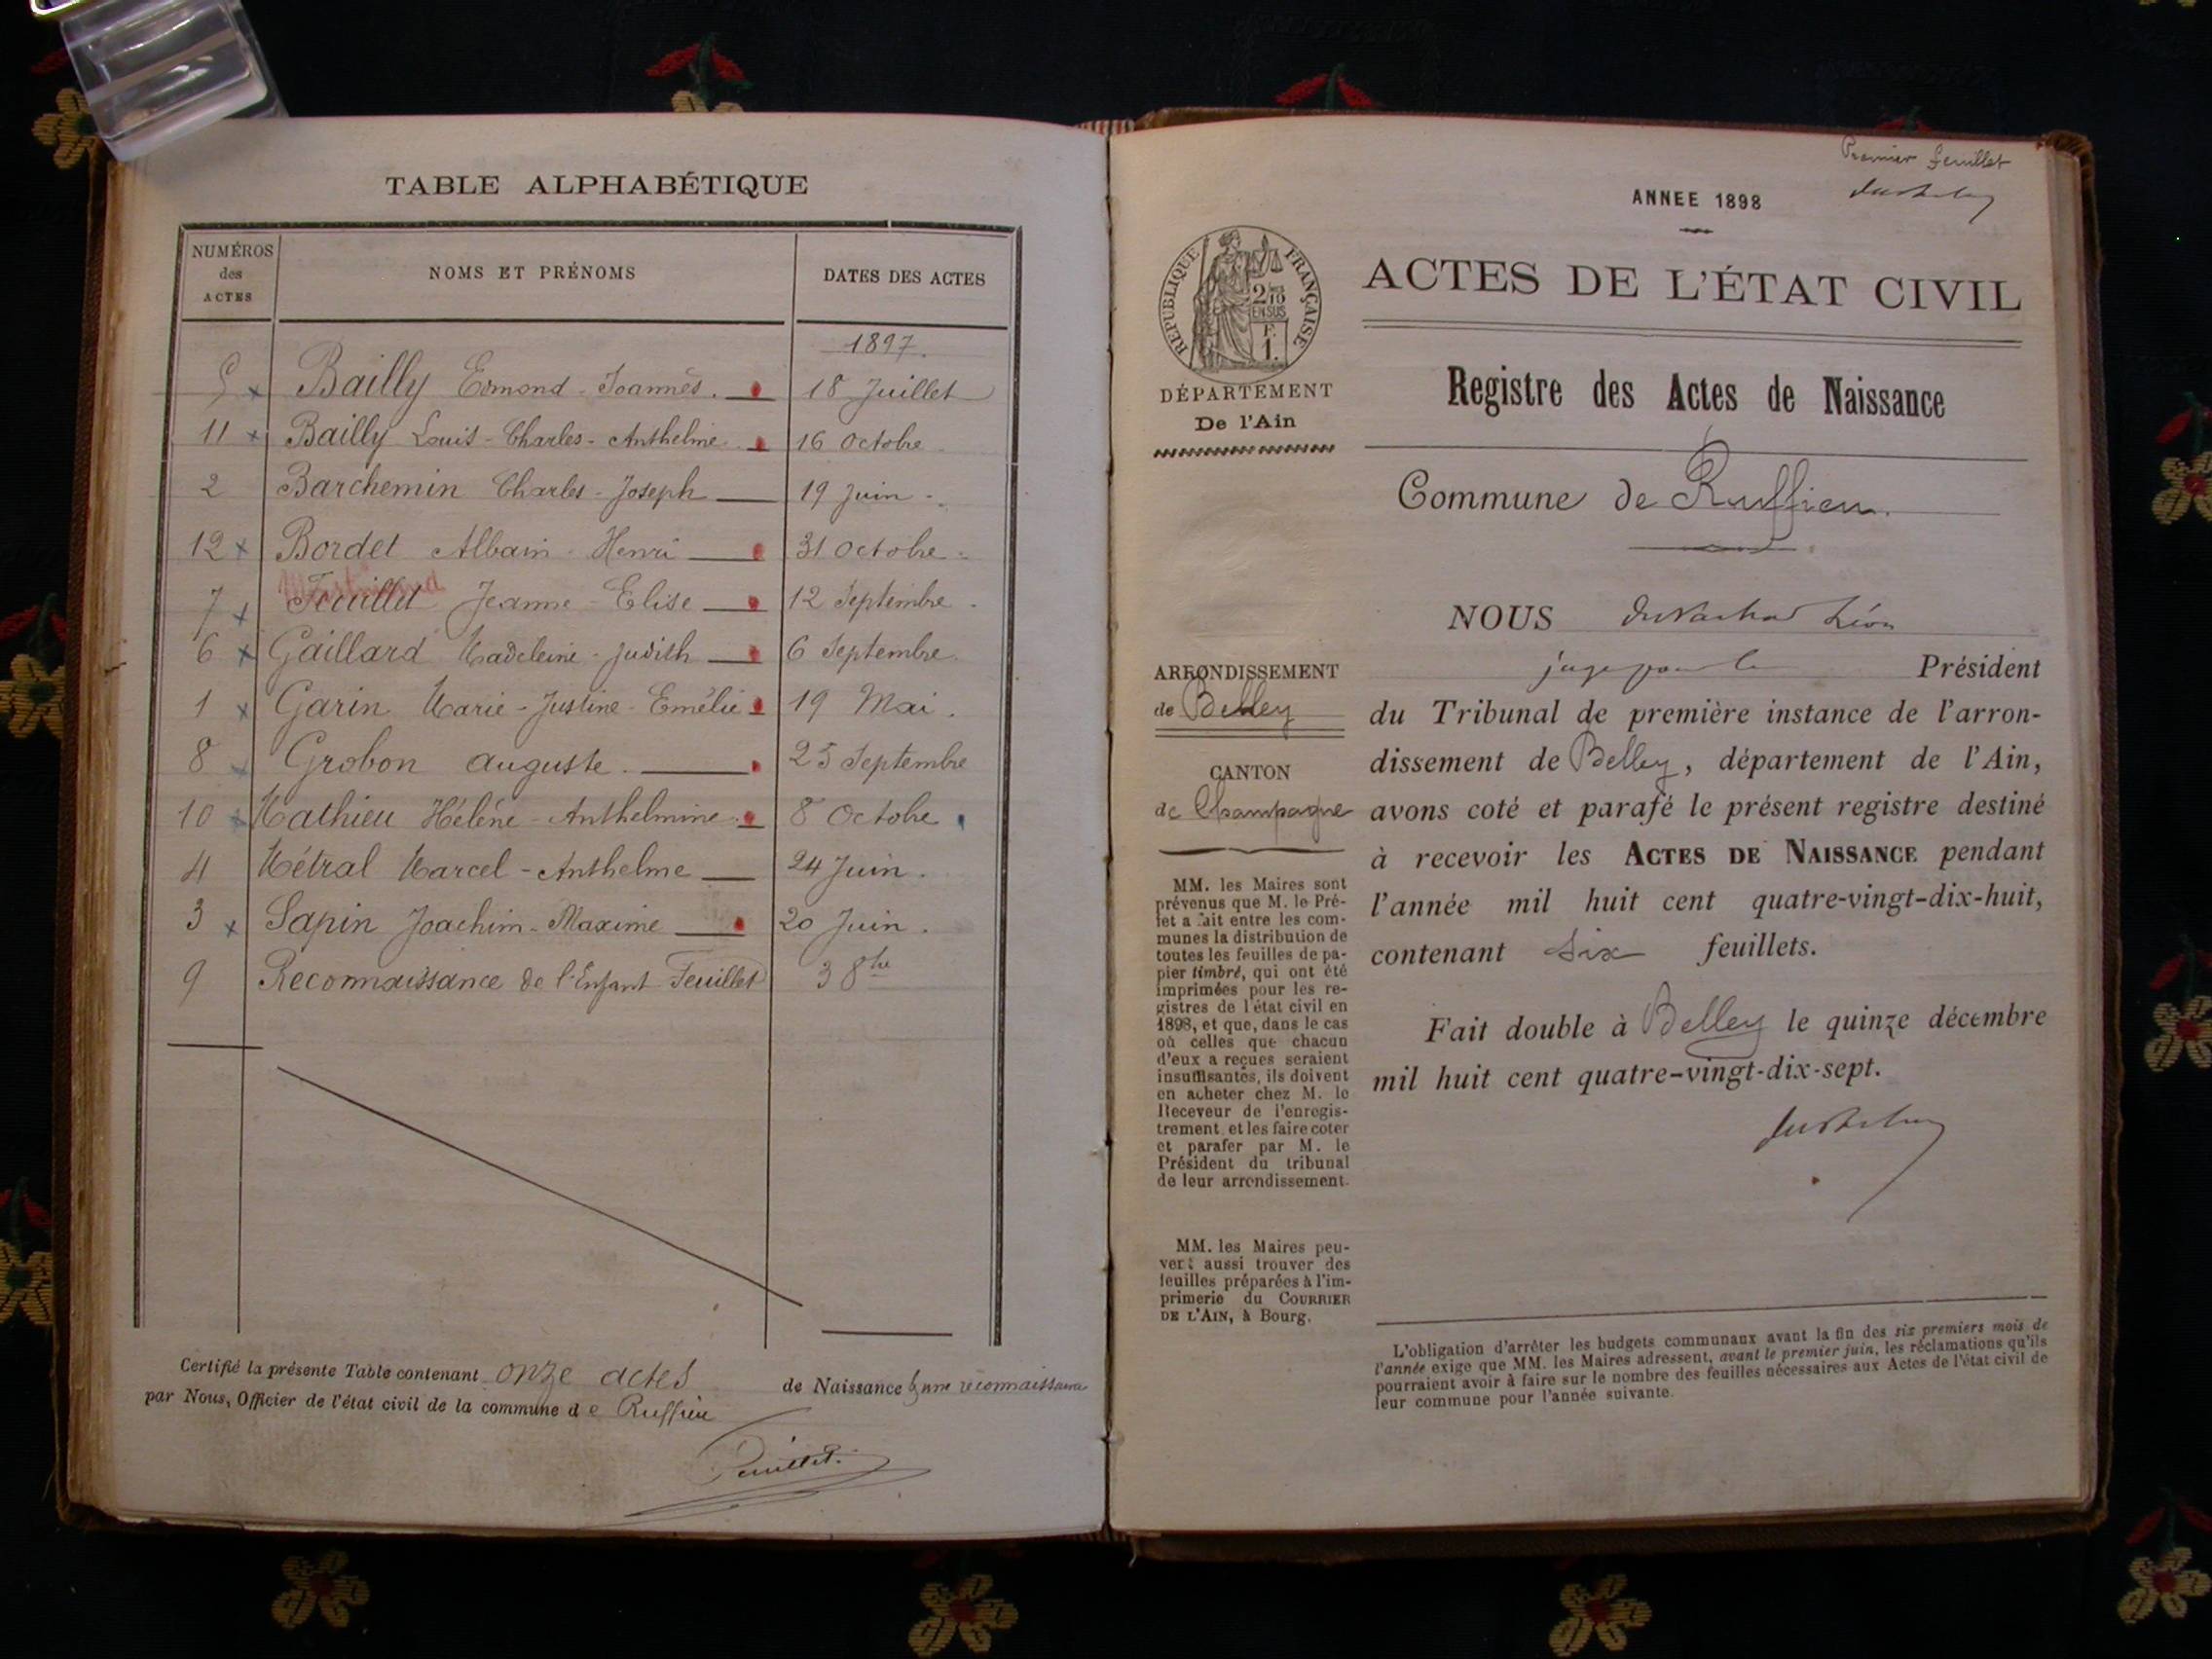 TABLE ALPHABÉTIQUE
NUMÉROS
des
ACTES
NOMS ET PRÉNOMS
DATES DES ACTES
1897.
5 x Bailly Edmond - Joannès. 18 Juillet
11 x Bailly Louis - Charles - Anthelme 16 Octobre
2 Barchemin Charles - Joseph 19 Juin
12 x Bordet Albain - Henri 31 Octobre
7 x Feuillet Jeanne - Elise 12 Septembre
6 x Gaillard Madeleine - Judith 6 Septembre
1 x Garin Marie - Justine - Emélie 19 Mai.
8 x Grobon Auguste. 25 Septembre
10 x Mathieu Hélène - Anthelmine 8 Octobre
4 Métral Marcel - Anthelme 24 Juin.
3 x Sapin Joachim - Maxime 20 Juin.
9 Reconnaissance de l'Enfant Feuillet 3 8bre
Certifié la présente Table contenant onze actes de Naissance & une reconnaissance
par Nous, Officier de l'état civil de la commune de Ruffieu
Feuillet.
Premier feuillet
ANNEE 1898
REPUBLIQUE FRANÇAISE
2/10
EN SUS
F.
1.
ACTES DE L'ÉTAT CIVIL
DÉPARTEMENT
De l'Ain
Registre des Actes de Naissance
Commune de Ruffieu.
NOUS Léon
juge pour le Président
ARRONDISSEMENT
de Belley
du Tribunal de première instance de l'arron-
dissement de Belley, département de l'Ain,
CANTON
de Champagne
avons coté et parafé le présent registre destiné
à recevoir les ACTES DE NAISSANCE pendant
l'année mil huit cent quatre-vingt-dix-huit,
contenant six feuillets.
Fait double à Belley le quinze décembre
mil huit cent quatre-vingt-dix-sept.
MM. les Maires sont
prévenus que M. le Pré-
fet a fait entre les com-
munes la distribution de
toutes les feuilles de pa-
pier timbré, qui ont été
imprimées pour les re-
gistres de l'état civil en
1898, et que, dans le cas
où celles que chacun
d'eux a reçues seraient
insuffisantes, ils doivent
en acheter chez M. le
Receveur de l'enregis-
trement et les faire coter
et parafer par M. le
Président du tribunal
de leur arrondissement.
MM. les Maires peu-
vent aussi trouver des
feuilles préparées à l'im-
primerie du COURRIER
DE L'AIN, à Bourg.
L'obligation d'arrêter les budgets communaux avant la fin des six premiers mois de
l'année exige que MM. les Maires adressent, avant le premier juin, les réclamations qu'ils
pourraient avoir à faire sur le nombre des feuilles nécessaires aux Actes de l'état civil de
leur commune pour l'année suivante.